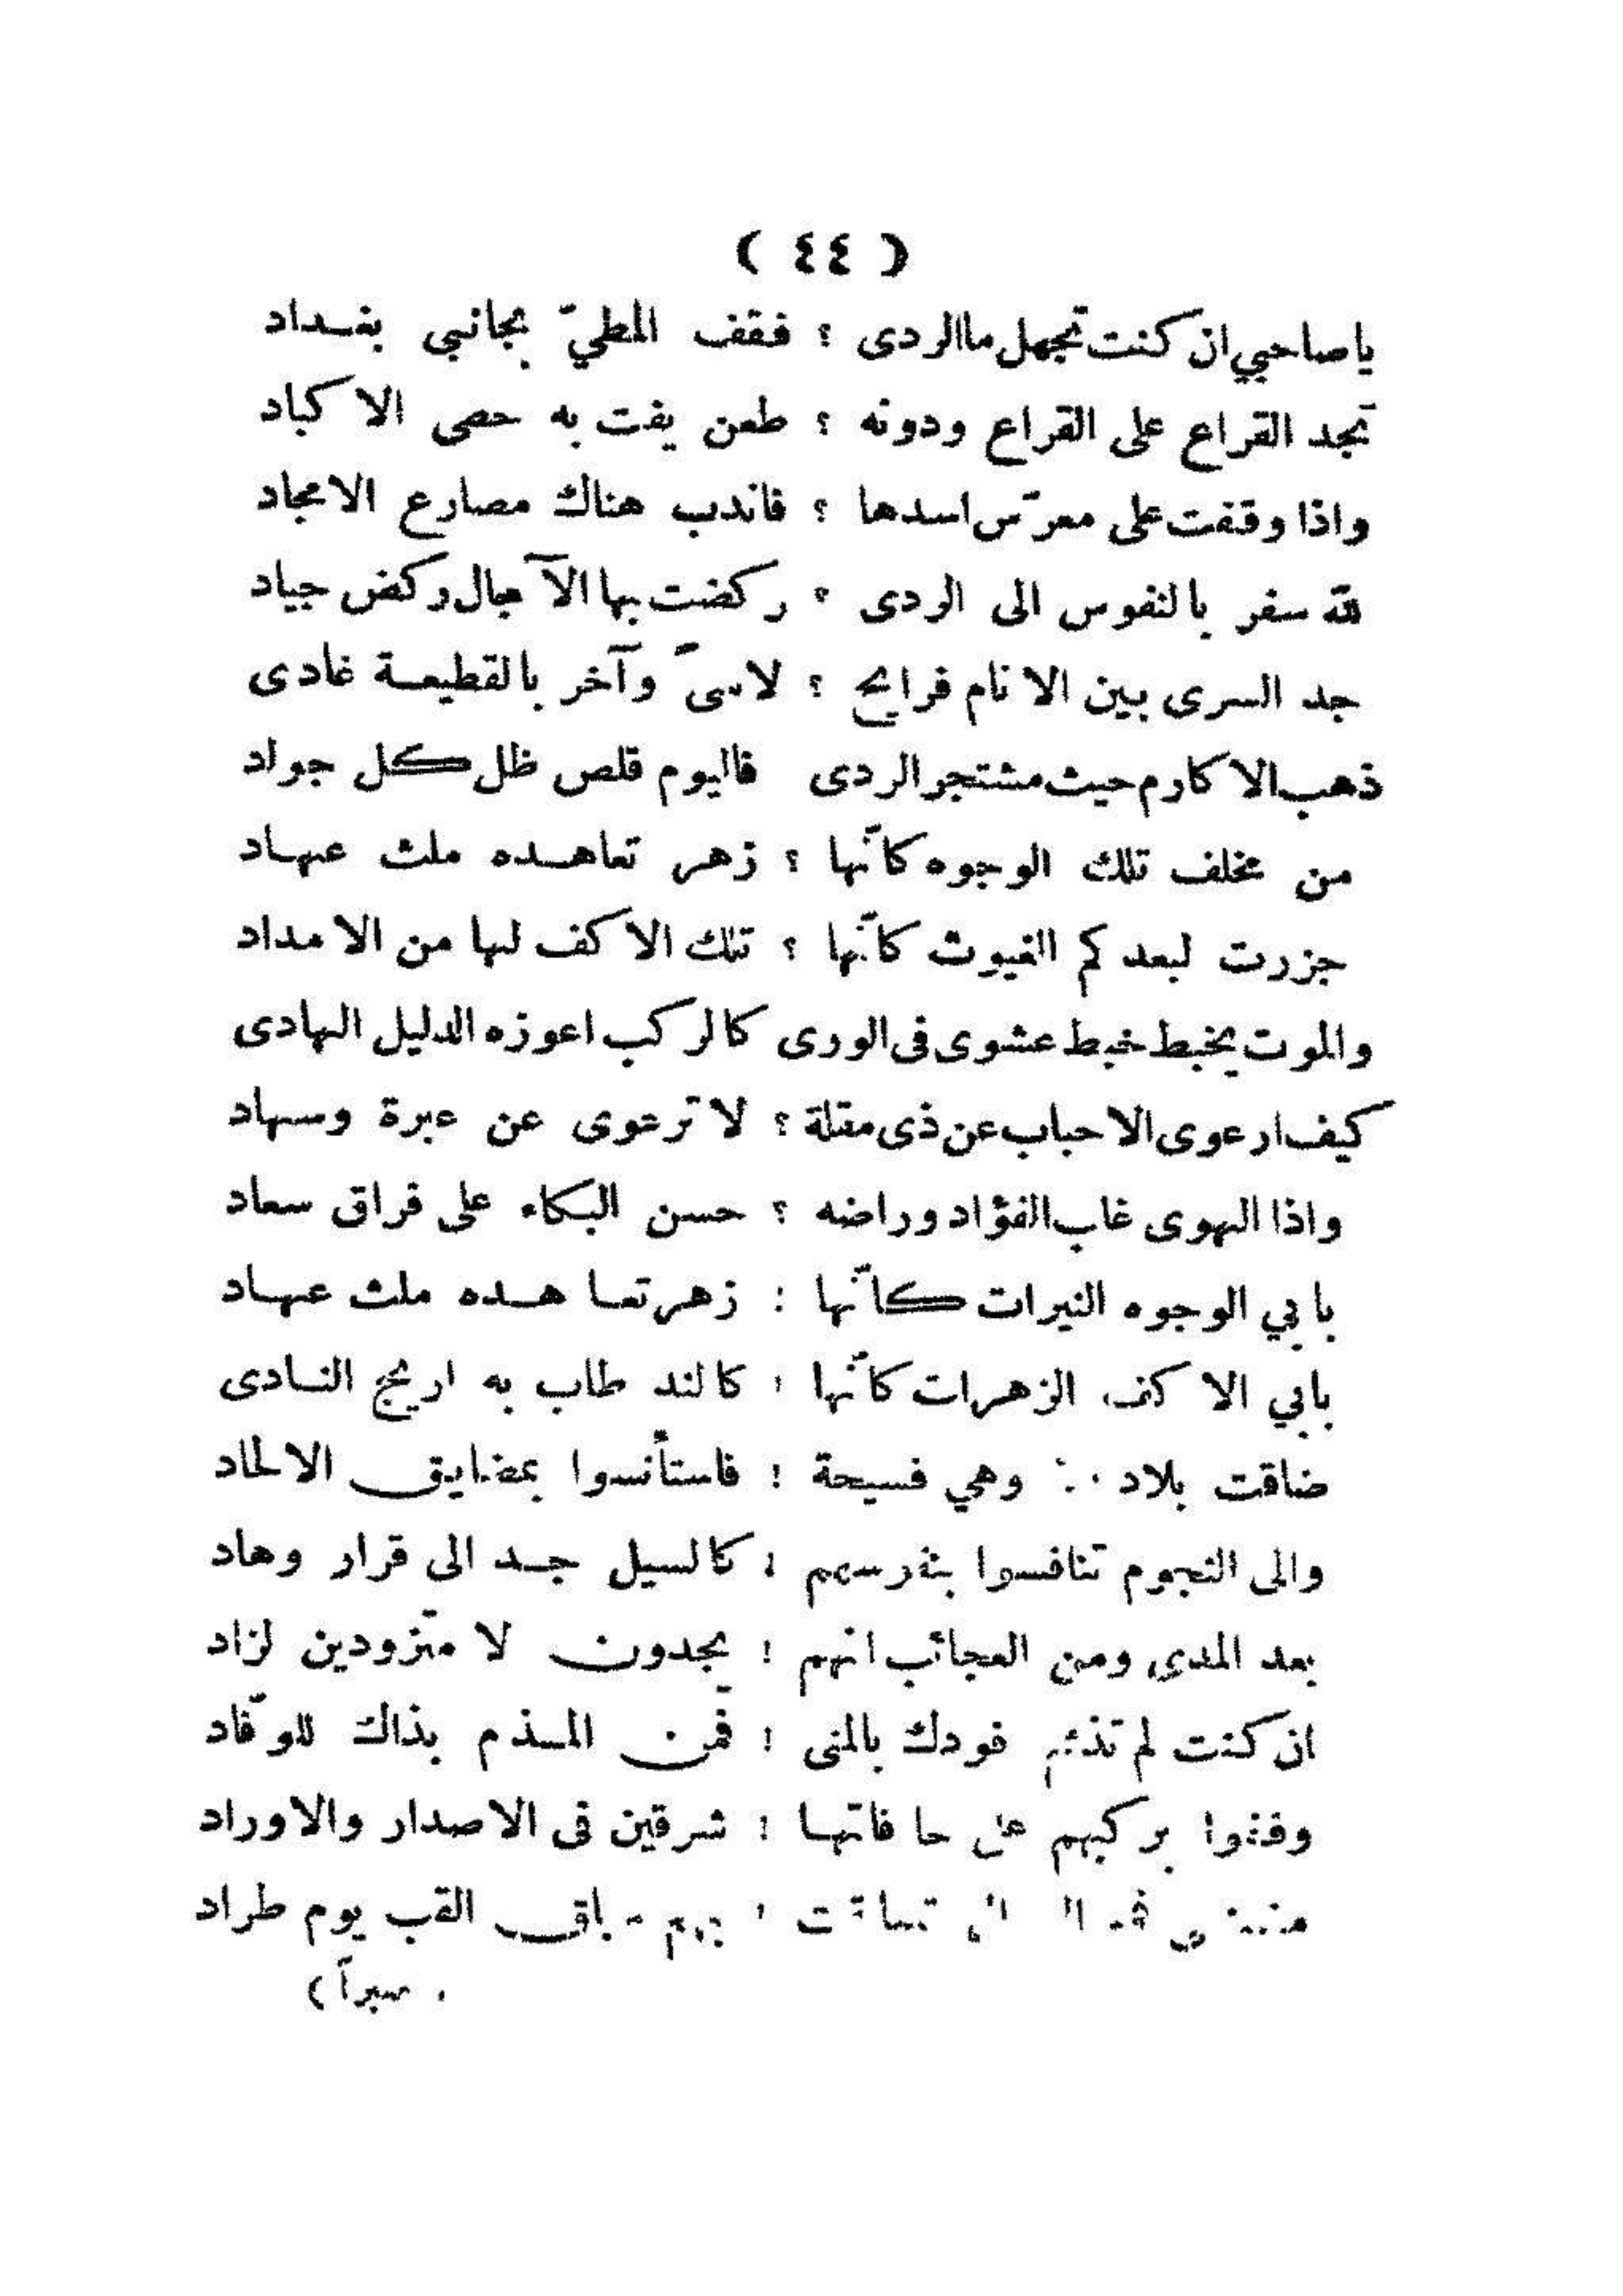 ( ٤٤ )
ياصاحبي ان كنت تجهل ماالردى ؟ فقف المطيّ بجانبي بغـداد
تجد القراع على القراع ودونه ؟ طعن يفت به حصى الاكباد
واذا وقفت على معرّس اسدها ؟ فاندب هناك مصارع الامجاد
لله سفر بالنفوس الى الردى ؟ ركضت بها الآجال ركض جياد
جد السرى بين الانام فرايح ؟ وآخر بالقطيعـة غادى
ذهب الاكارم حيث مشتجر الردى فاليوم قلص ظل كل جواد
من مخلف تلك الوجوه كانّها ؟ زهر تعاهـده ملث عهـاد
جزرت لبعدكم الغيوث كانّها ؟ تلك الاكف لها من الامداد
والموت يخبط خبط عشوى فى الورى كالركب اعوزه الدليل الهادى
كيف ارعوى الاحباب عن ذى مقلة ؟ لا ترعوى عن عبرة وسهاد
واذا الهوى غاب الفؤاد وراضه ؟ حسن البكاء على فراق سعاد
بابي الوجوه النيرات كانّها : زهر تعـاهـده ملث عهـاد
بابي الاكف الزهرات كانّها ؛ كالند طاب به اريج النـادى
ضاقت بلاد وهي فسيحة ! فاستأنسوا بمضايق الالحاد
والى النجوم تنافسوا كالسيل جـد الى قرار وهاد
بعد المدى ومن العجائب انهم ! يجدون لا متزودين لزاد
ان كنت لم فودك بالمنى ! فمن المـذم بذاك للوقّاد
وقفوا بركبهم على حافاتهـا ! شرقين فى الاصدار والاوراد
القب يوم طراد
صبراً )